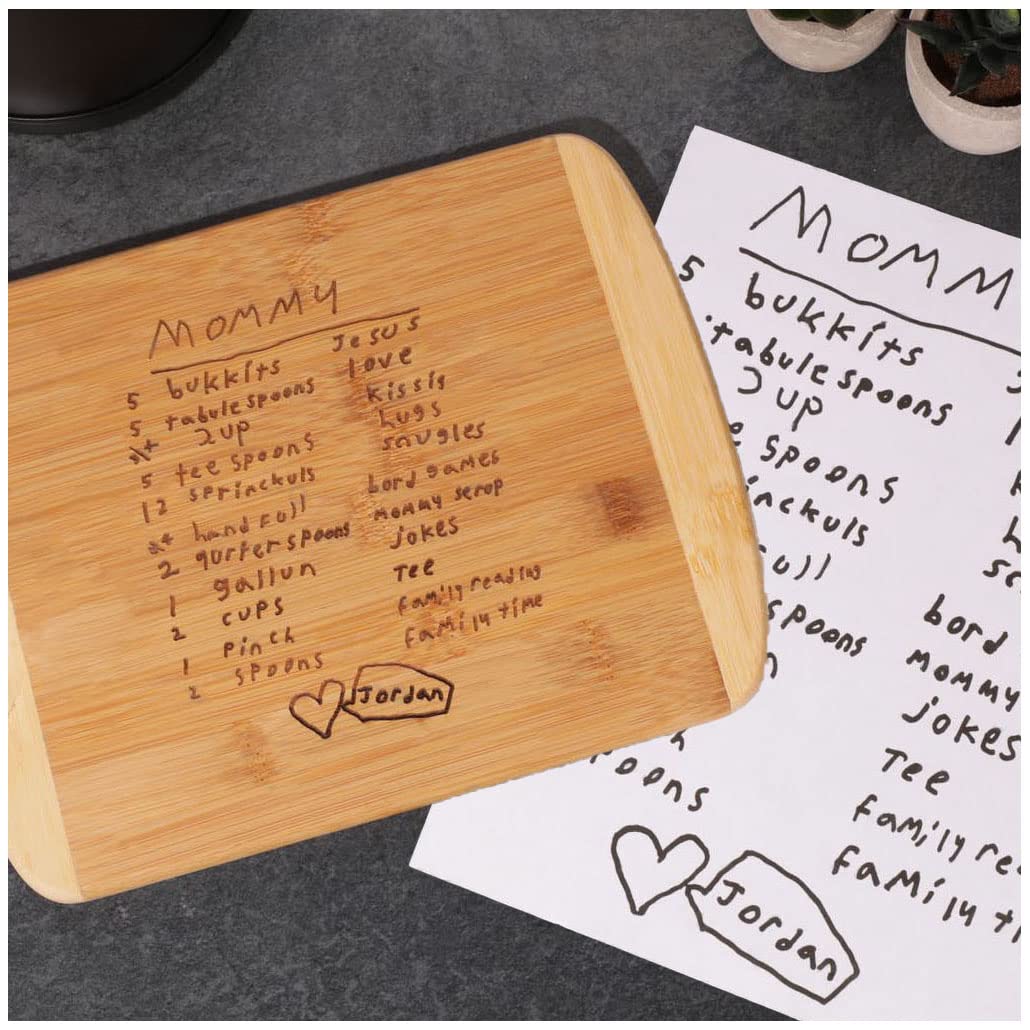 MOMMY
5 bukkits Jesus
5 tabule spoons love
2 up kissis
5 tee spoons hugs
12 sprinckuls snugles
hand full bord games
2 qurter spoons mommy serop
1 gallun jokes
2 cups Tee
1 pinch family reading
2 spoons family time
Jordan
MOMM
5 bukkits
tabule spoons
2 up
e spoons
inckuls
ull
spoons
bord
mommy
jokes
Tee
family re
poons
family ti
Jordan